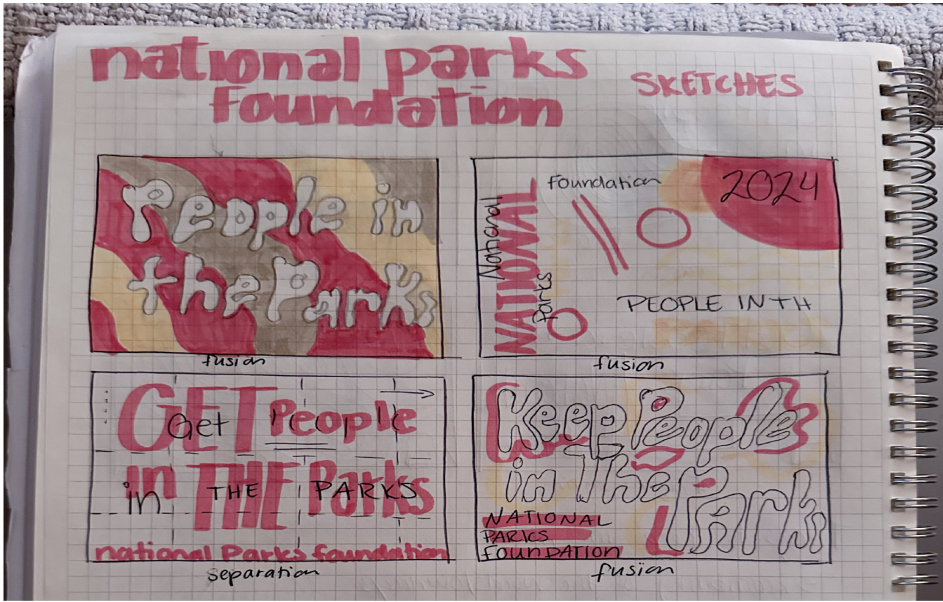 national parks
foundation
SKETCHES
People in
the Parks
fusion
Foundation
2024
National
NATIONAL
Parks
PEOPLE IN TH
fusion
GET People
Get
in THE Parks
in THE PARKS
national Parks foundation
separation
Keep People
in The
Parks
NATIONAL
PARKS
FOUNDATION
fusion